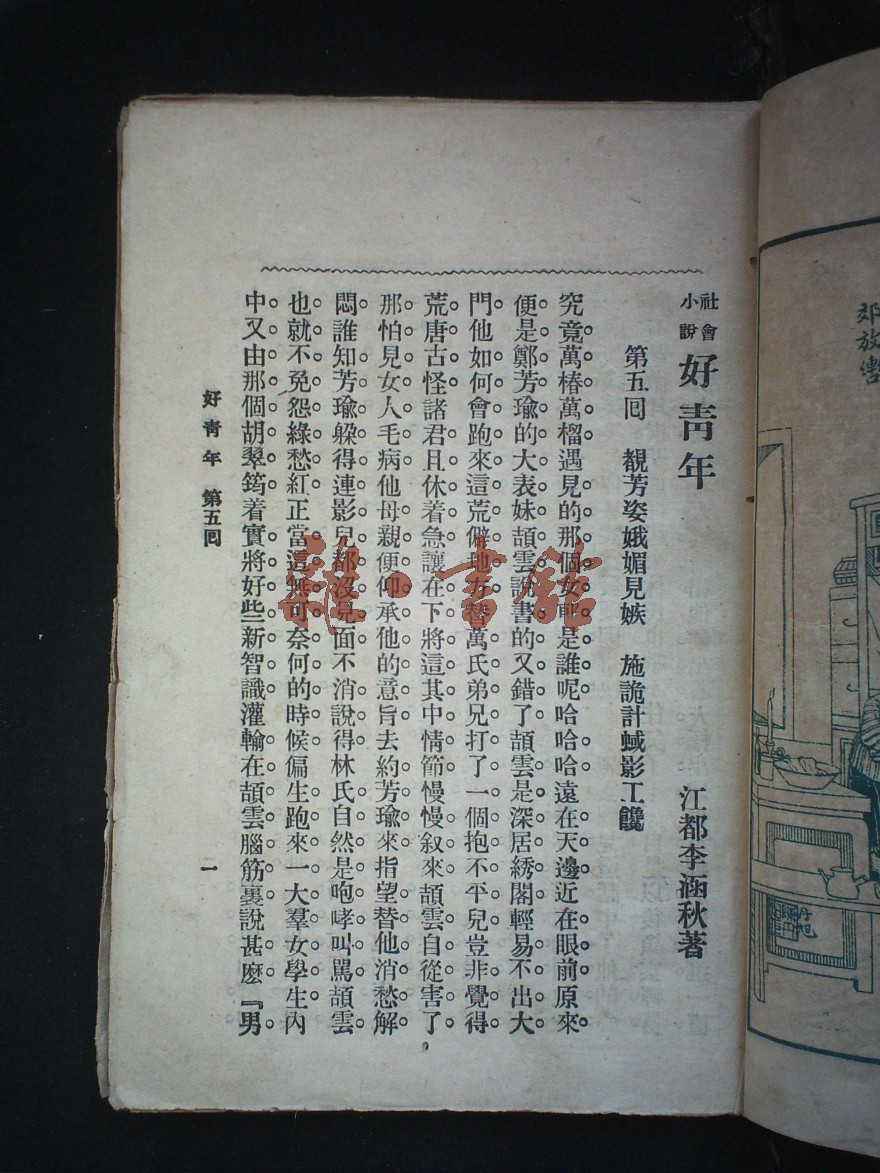 社會
小說
好青年
江都李涵秋著
第五囘　覩芳姿娥媚見嫉　施詭計蜮影工讒
究竟萬椿萬榴遇見的那個女郎是誰呢哈哈哈遠在天邊近在眼前原來
便是鄭芳瑜的大表妹頡雲說書的又錯了頡雲是深居綉閣輕易不出大
門他如何會跑來這荒僻地方替萬氏弟兄打了一個抱不平兒豈非覺得
荒唐古怪諸君且休着急讓在下將這其中情節慢慢叙來頡雲自從害了
那怕見女人毛病他母親便仰承他的意旨去約芳瑜來指望替他消愁解
悶誰知芳瑜躲得連影兒都沒見面不消說得林氏自然是咆哮叫罵頡雲
也就不免怨綠愁紅正當這無可奈何的時候偏生跑來一大羣女學生內
中又由那個胡翠筠着實將好些新智識灌輸在頡雲腦筋裏說甚麽『男
好青年　第五囘
一
雜·書館